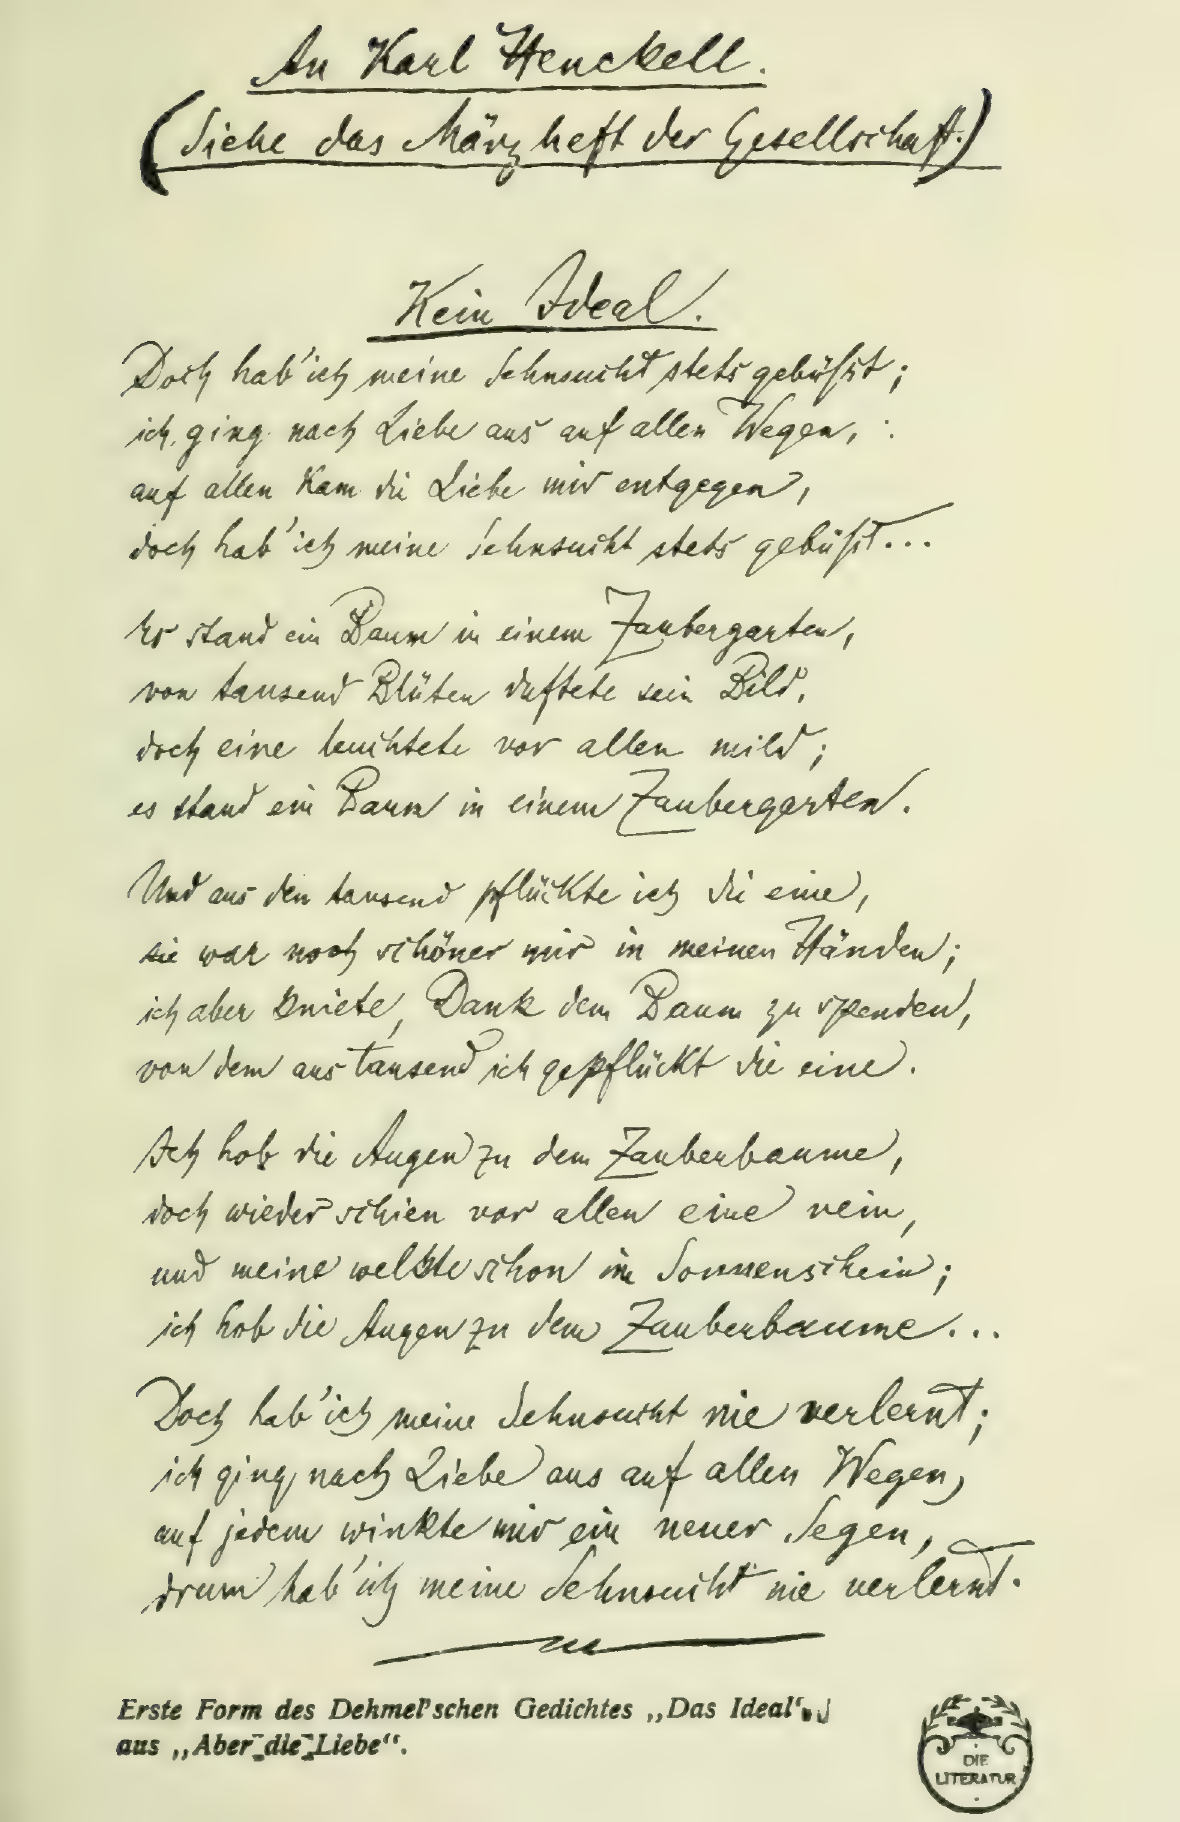 An Karl Henckell.
(Siehe das Märzheft der Gesellschaft.)
Kein Ideal.
Doch hab' ich meine Sehnsucht stets gebüßt;
ich ging nach Liebe aus auf allen Wegen,
auf allen kam die Liebe mir entgegen,
doch hab' ich meine Sehnsucht stets gebüßt...
Es stand ein Baum in einem Zaubergarten,
von tausend Blüten duftete sein Bild,
doch eine leuchtete vor allen mild;
es stand ein Baum in einem Zaubergarten.
Und aus den tausend pflückte ich die eine,
sie war noch schöner mir in meinen Händen;
ich aber kniete, Dank dem Baum zu spenden,
von dem aus tausend ich gepflückt die eine.
Ich hob die Augen zu dem Zauberbaume,
doch wieder schien vor allen eine rein,
und meine welkte schon im Sonnenschein;
ich hob die Augen zu dem Zauberbaume...
Doch hab' ich meine Sehnsucht nie verlernt;
ich ging nach Liebe aus auf allen Wegen,
auf jedem winkte mir ein neuer Segen,
drum hab' ich meine Sehnsucht nie verlernt.
Erste Form des Dehmel'schen Gedichtes „Das Ideal“
aus „Aber die Liebe“.
DIE
LITERATUR